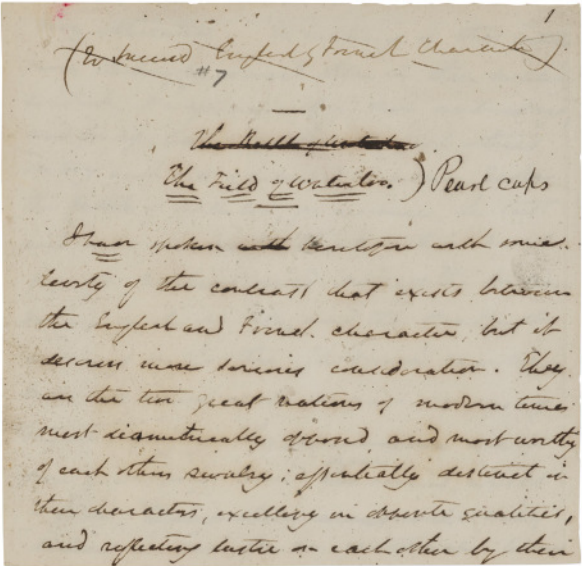 1
(To succeed English & French Character)
#7
The Field of Waterloo. ) Pearl caps
I have spoken heretofore with some
levity of the contrast that exists between
the English and French character, but it
deserves more serious consideration. They
are the two great nations of modern times
most diametrically opposed and most worthy
of each others rivalry; essentially distinct in
their characters, excelling in opposite qualities,
and reflecting lustre on each other by their